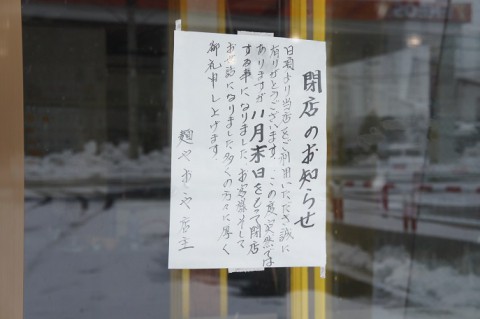 閉店のお知らせ
日頃より当店をご利用いただき誠に
有りがとうございます。この度突然では
ありますが八月末日をもって閉店
する事になりました。お客様そして
お世話になりました多くの方々に厚く
御礼申し上げます。
麺や 店主